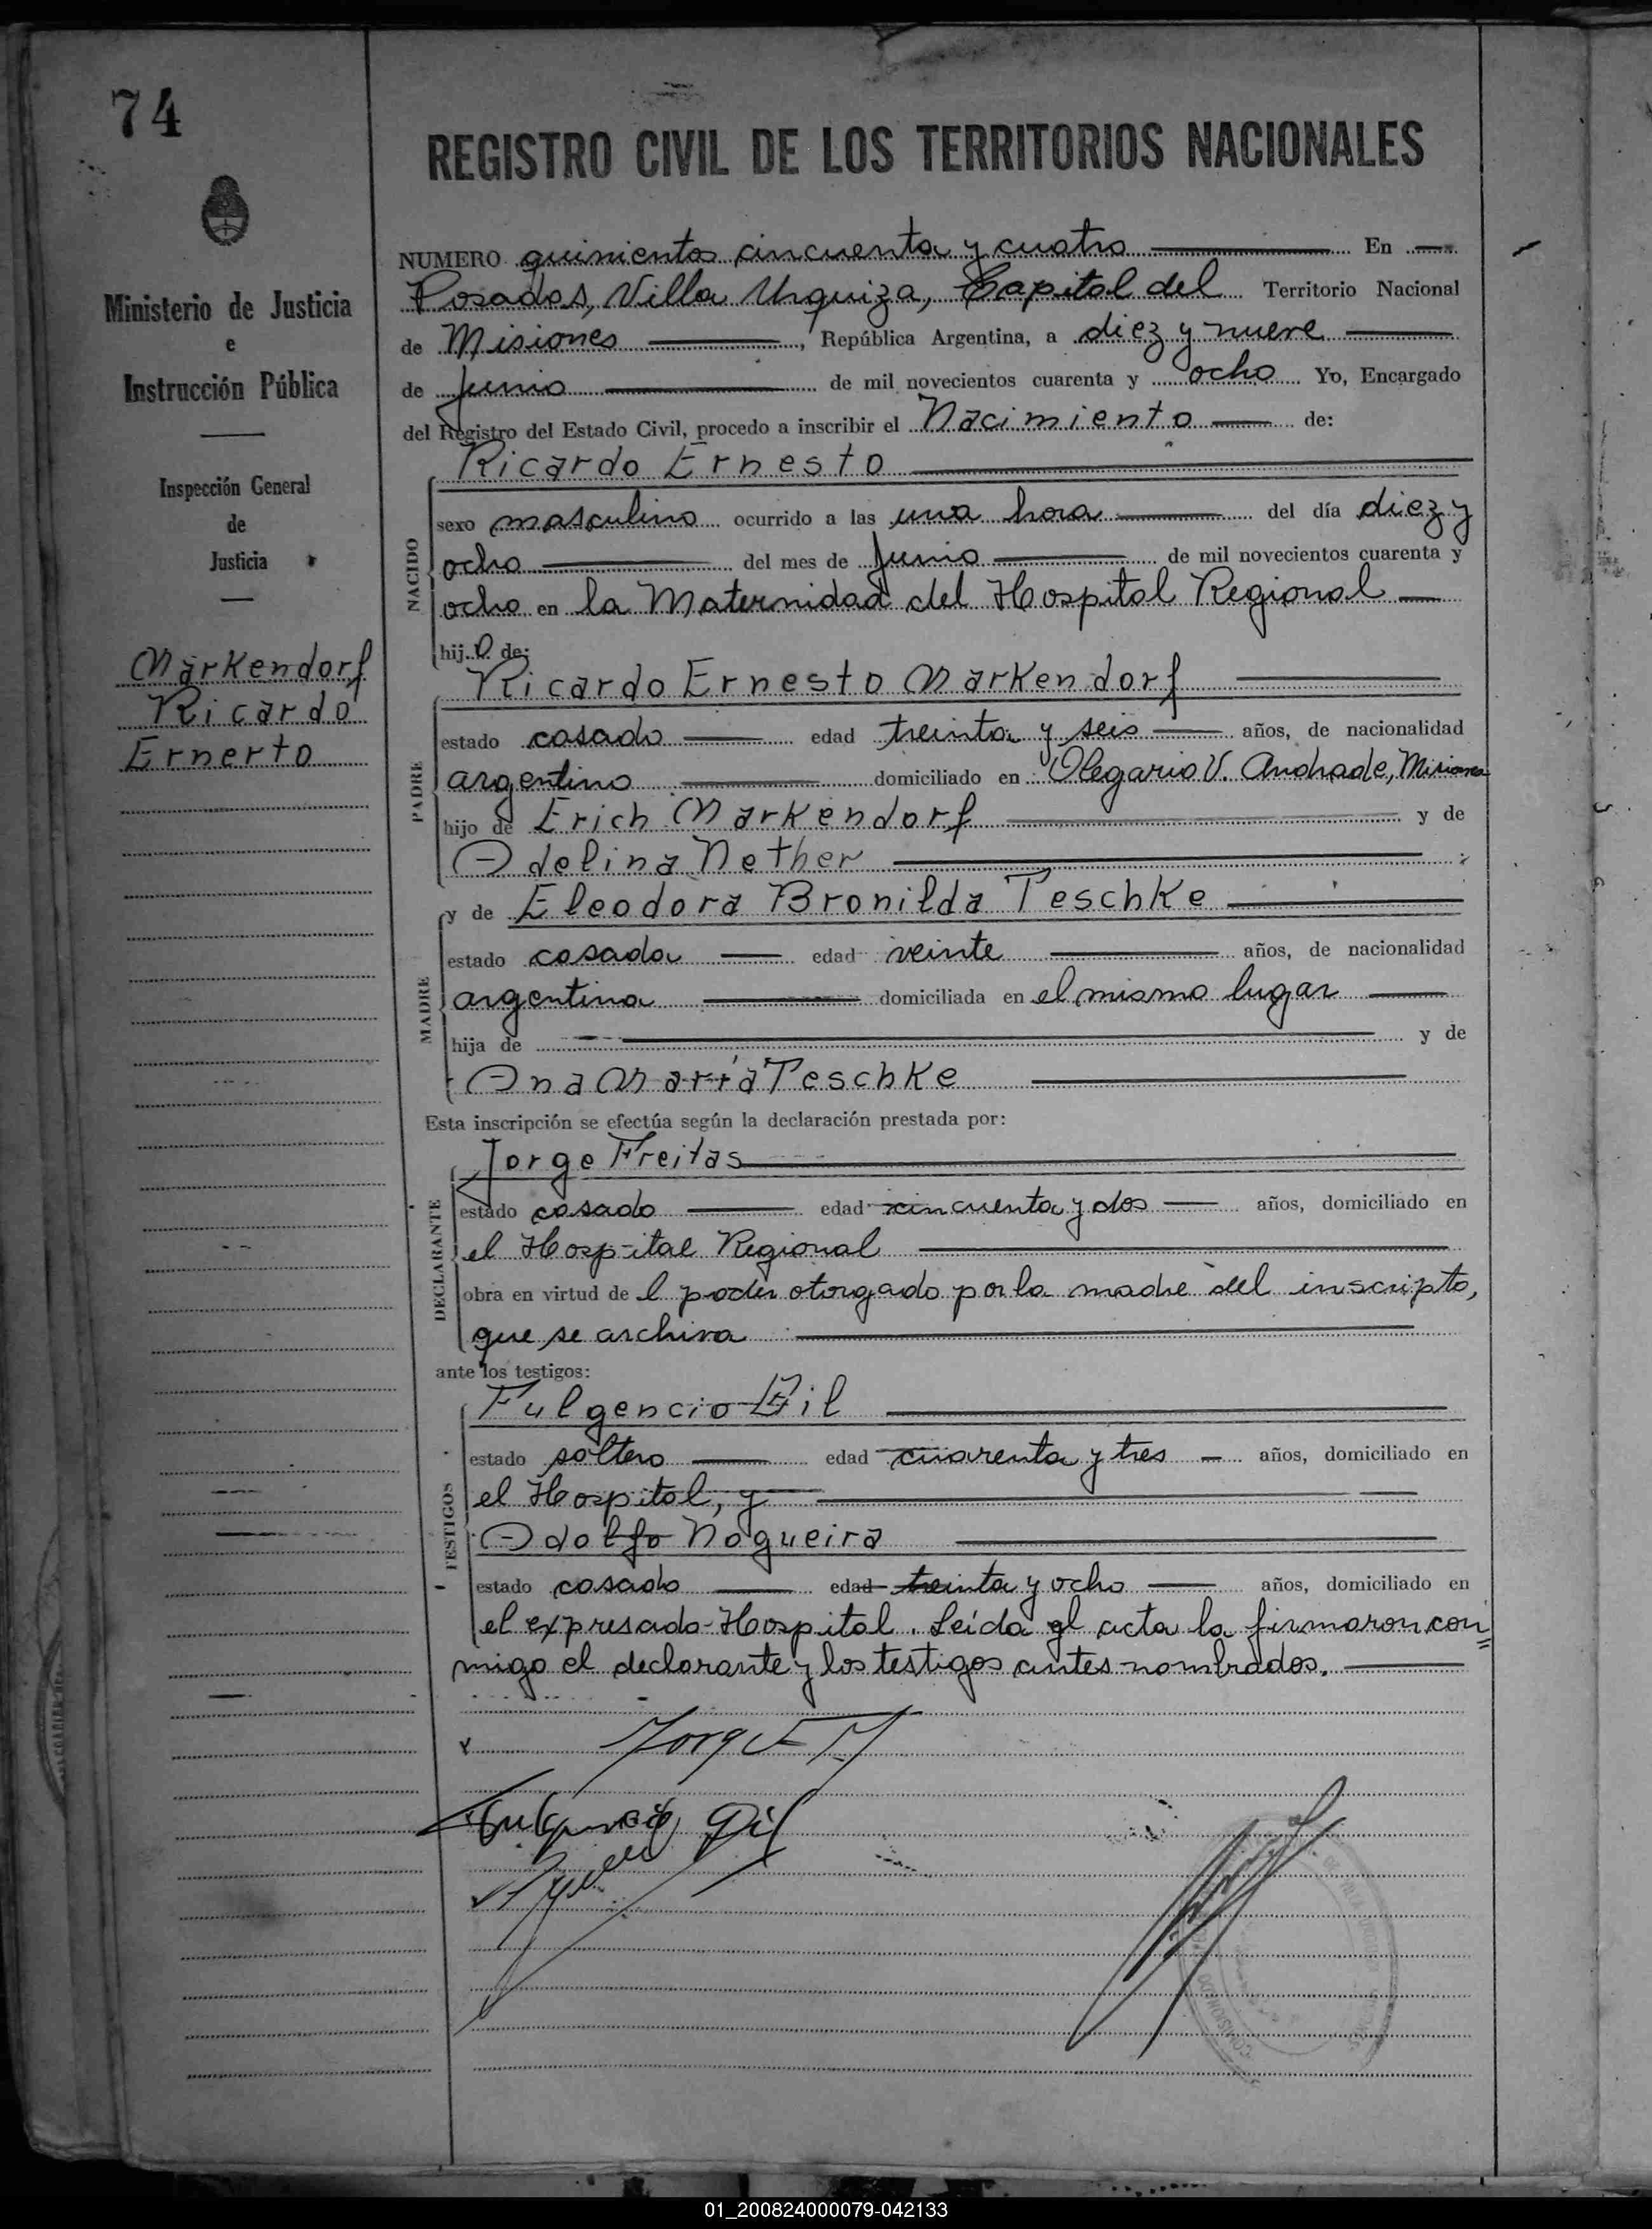 74
REGISTRO CIVIL DE LOS TERRITORIOS NACIONALES
Ministerio de Justicia
e
Instrucción Pública
Inspección General
de
Justicia
Markendorf
Ricardo
Ernerto
NUMERO quinientos cincuenta y cuatro En
Posadas, Villa Urquiza, Capital del Territorio Nacional
de Misiones, República Argentina, a diez y nueve
de Junio de mil novecientos cuarenta y ocho Yo, Encargado
del Registro del Estado Civil, procedo a inscribir el Nacimiento de:
Ricardo Ernesto
NACIDO
sexo masculino ocurrido a las una hora del día diez y
ocho del mes de Junio de mil novecientos cuarenta y
ocho en la Maternidad del Hospital Regional
hijo de:
Ricardo Ernesto Markendorf
PADRE
estado casado edad treinta y seis años, de nacionalidad
argentino domiciliado en Olegario V. Andrade, Misiones
hijo de Erich Markendorf y de
Adelina Nether ;
y de Eleodora Bronilda Teschke
MADRE
estado casada edad veinte años, de nacionalidad
argentina domiciliada en el mismo lugar
hija de y de
Ana María Teschke
Esta inscripción se efectúa según la declaración prestada por:
Jorge Freitas
DECLARANTE
estado casado edad cincuenta y dos años, domiciliado en
el Hospital Regional
obra en virtud de l poder otorgado por la madre del inscripto,
que se archiva
ante los testigos:
Fulgencio Gil
TESTIGOS
estado soltero edad cuarenta y tres años, domiciliado en
el Hospital, y
Adolfo Nogueira
estado casado edad treinta y ocho años, domiciliado en
el expresado Hospital. Leída el acta la firmaron con=
migo el declarante y los testigos antes nombrados.
Jorge
Fulgencio Gil
01_200824000079-042133